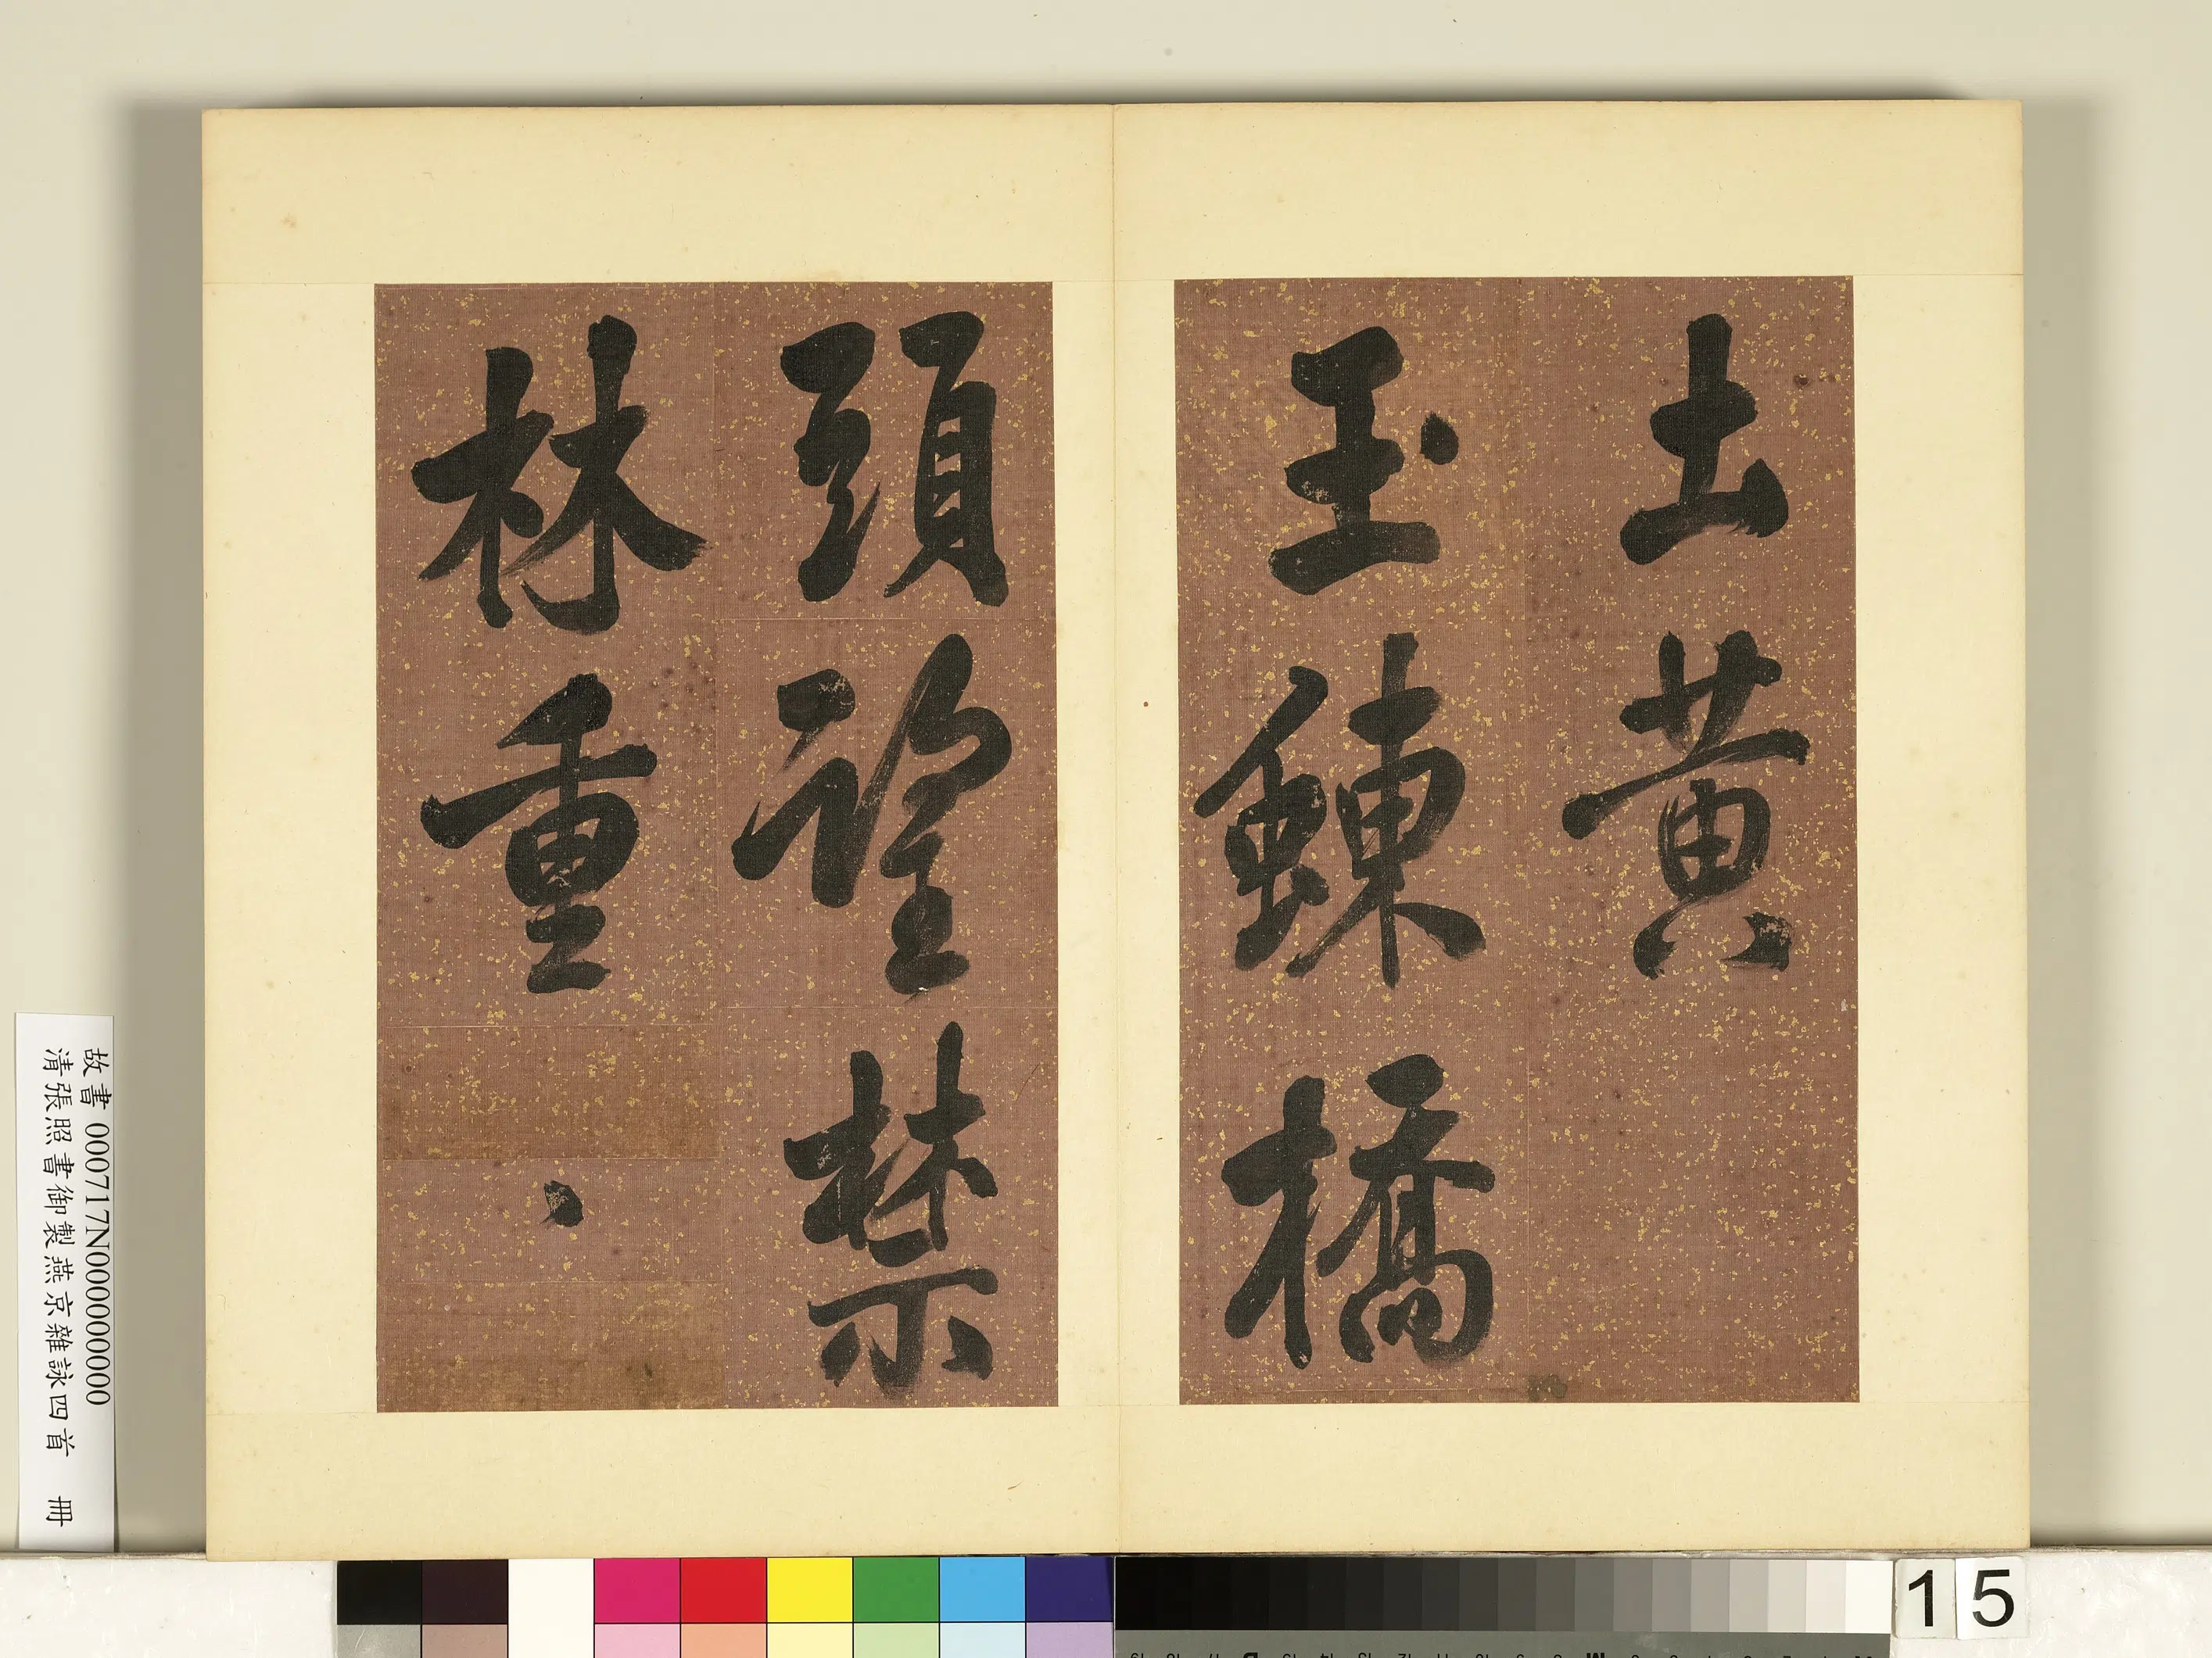 土黃
玉鯟橋
頭望禁
林重
、
故書 000717N000000000
清張照書御製燕京雜詠四首 冊
15